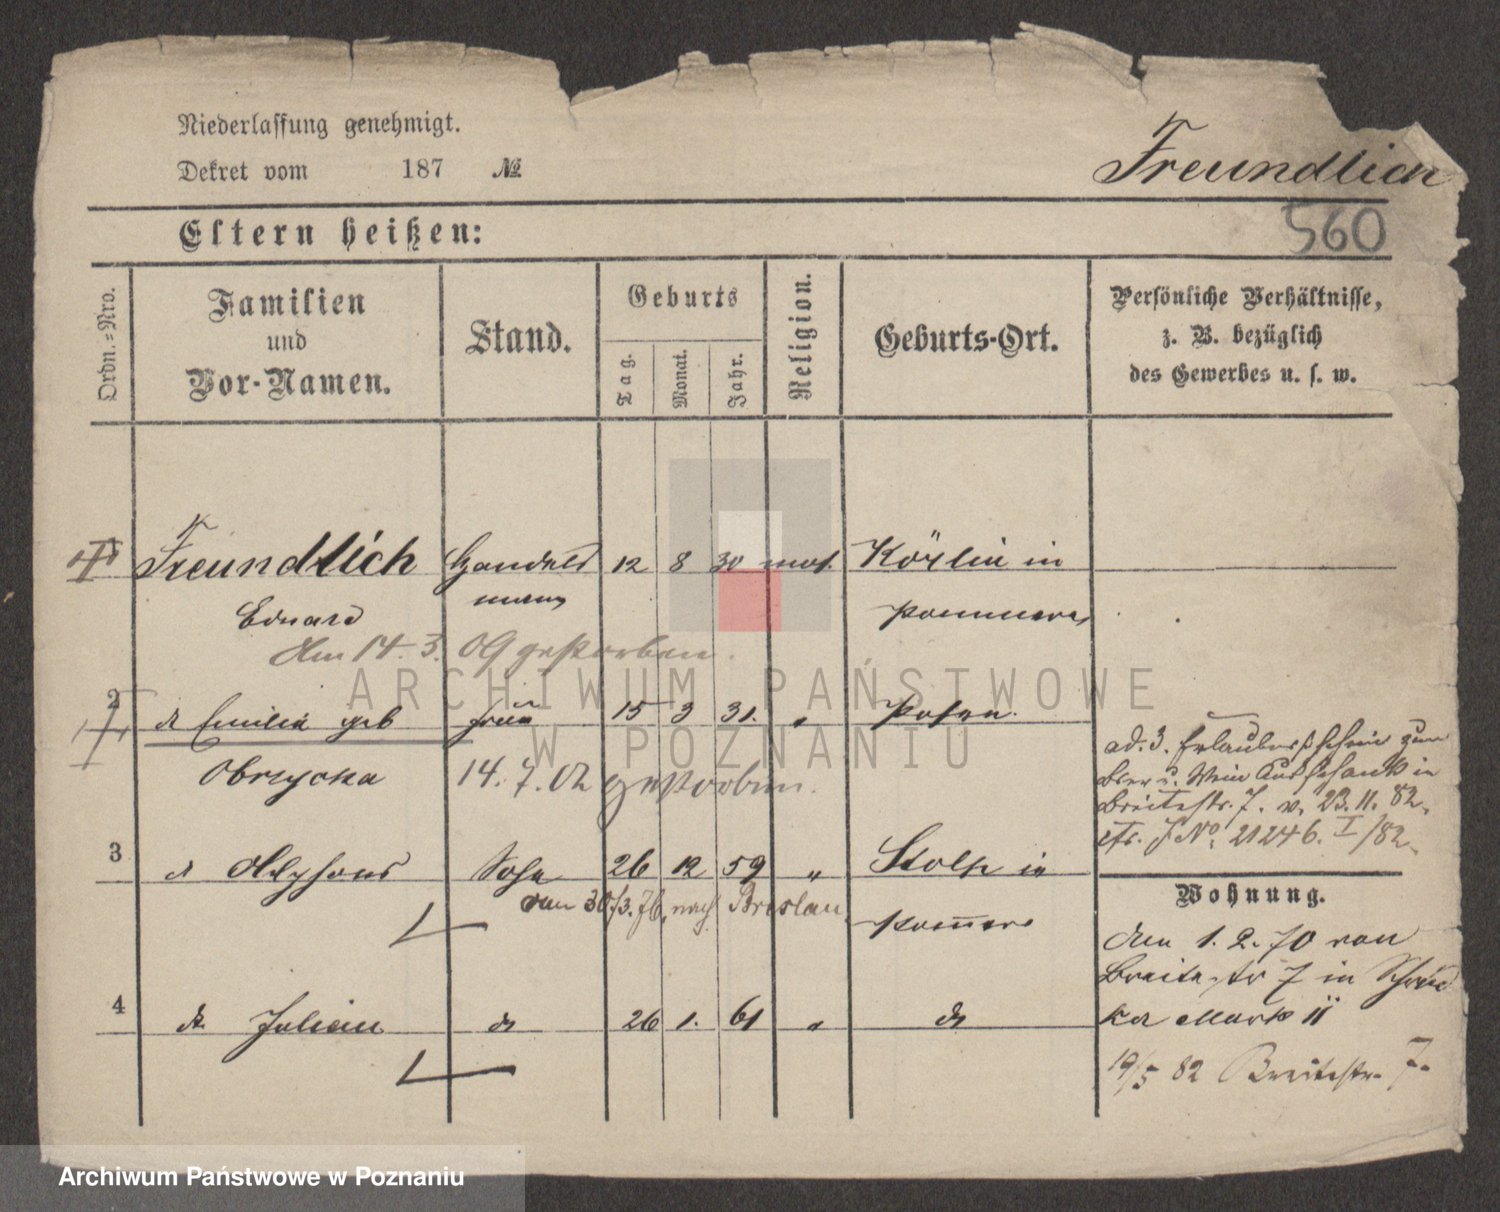 Niederlassung genehmigt.
Dekret vom 187 №
Freundlich
560
Eltern heißen:
Ordn.-Nro.
Familien und Vor-Namen.
Stand.
Geburts
Tag.
Monat.
Jahr.
Religion.
Geburts-Ort.
Persönliche Verhältnisse,
z. B. bezüglich
des Gewerbes u. s. w.
Freundlich Handels 12 8 30 mos. Körlin in
Eduard mann Pommern
Am 14. 3. 09 gestorben.
2 Emilie geb Frau 15 3 31. " Posen.
Obrzycka 14. 7. 02 gestorben.
3 Alphons Sohn 26 12 59 " Stolp in
30/3. 76. nach Breslau. Pommern
4 Julian 26 1. 61 "
ad. 3. Erlaubnißschein zum
Bier u. Wein Ausschank in
Breitestr. 7. v. 23. 11. 82.
cfr. J. No. 21246. I/82.
Wohnung.
Den 1. 2. 70 von
Breitestr 7 in
Markt 11
19/5 82 Breitestr. 7.
ARCHIWUM PAŃSTWOWE
W POZNANIU
Archiwum Państwowe w Poznaniu